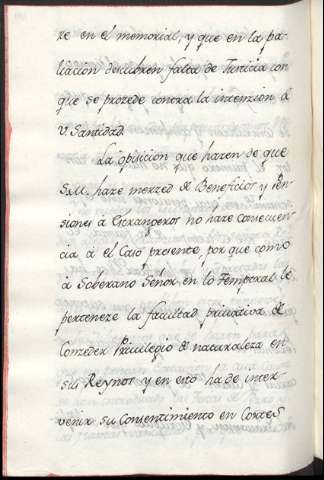 ze en el memorial, y que en la pa-
liacion descubren falta de Justicia con
que se prozede contra la intenzion de
V. Santidad.
La oposicion que hazen de que
S.M. haze merzed de Beneficios, y Pen-
siones à Estrangeros no haze consequen-
cia à el Caso presente, por que como
à Soberano Señor en lo Temporal le
perteneze la facultad privativa de
Conzeder Privilegio de naturaleza en
sus Reynos y en esto ha de inter-
venir su Consentimiento en Cortes